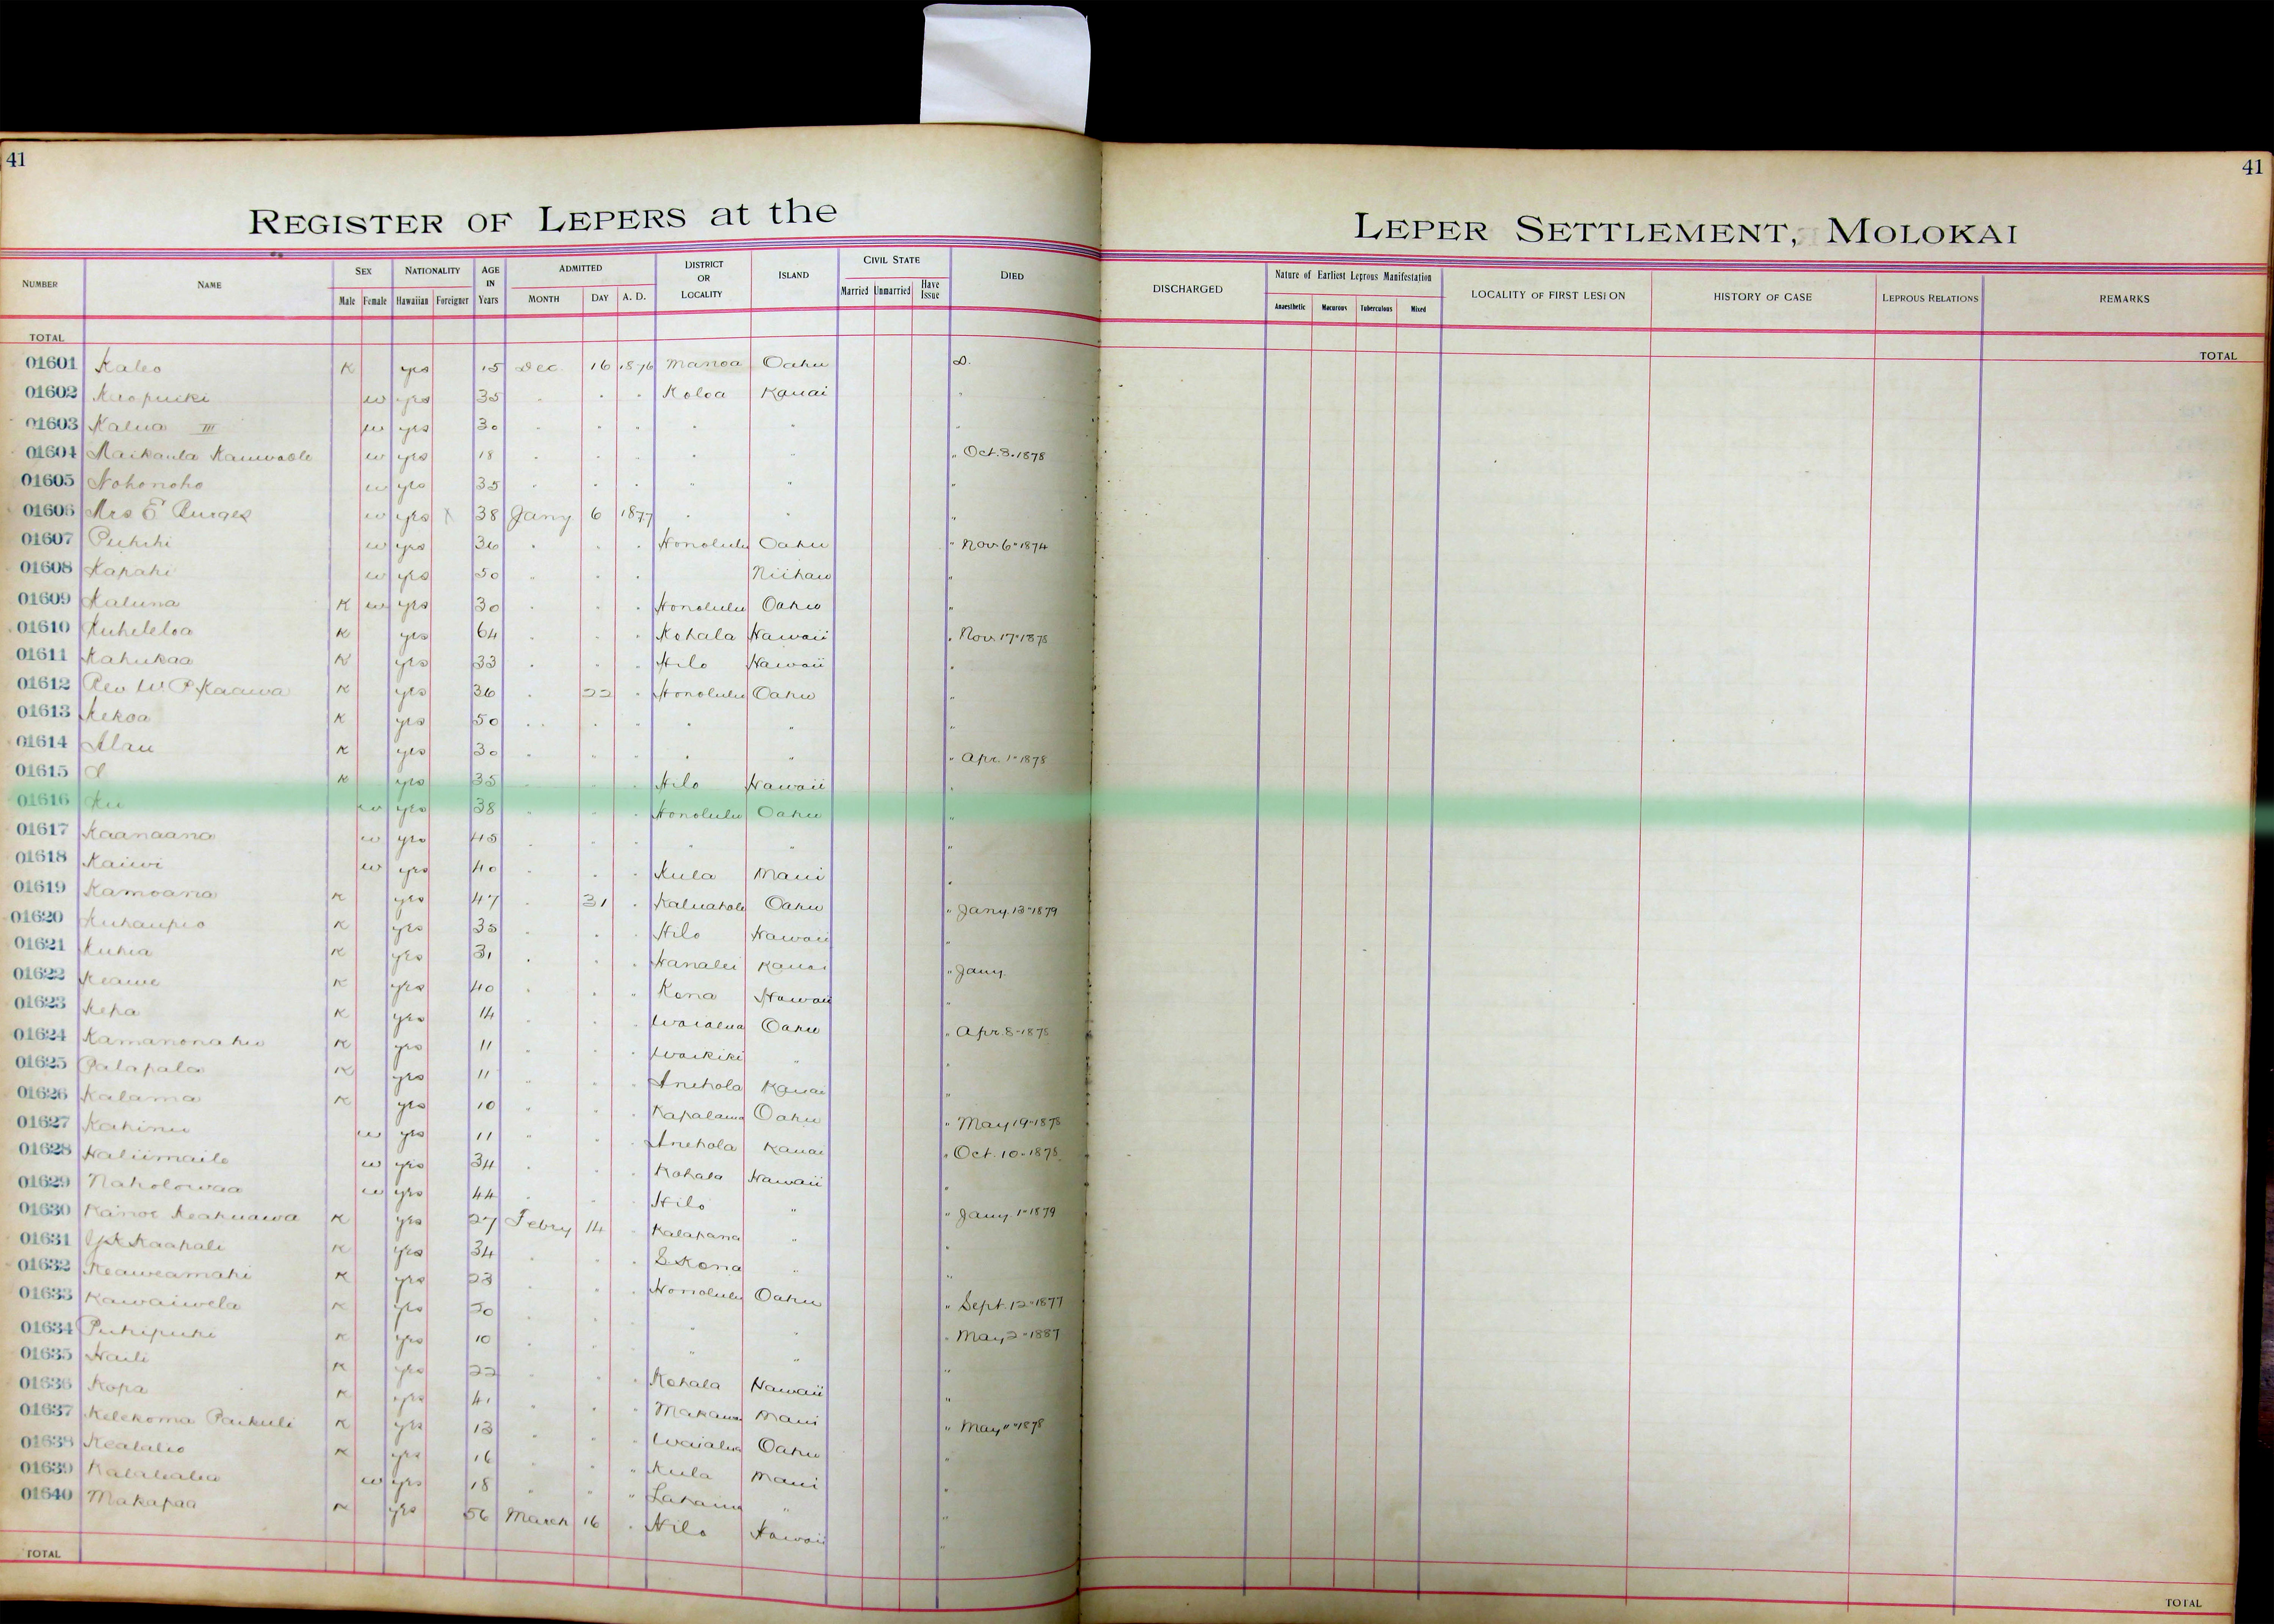 41
41
REGISTER OF LEPERS at the LEPER SETTLEMENT, MOLOKAI
NUMBER NAME SEX NATIONALITY AGE IN Years ADMITTED DISTRICT OR LOCALITY ISLAND CIVIL STATE DIED DISCHARGED Nature of Earliest Leprous Manifestation LOCALITY OF FIRST LESION HISTORY OF CASE LEPROUS RELATIONS REMARKS
Male Female Hawaiian Foreigner MONTH DAY A. D. Married Unmarried Have Issue Anaesthetic Macurous Tuberculous Mixed
TOTAL TOTAL
01601 Kaleo K yes 15 Dec 16 1876 Manoa Oahu D.
01602 w yes 35 " " " Koloa Kauai "
01603 Kalua III w yes 30 " " " " " "
01604 Maikaula w yes 18 " " " " " " Oct. 3. 1878
01605 Nohonoho w yes 35 " " " " " "
01606 Mrs E Burges w yes X 38 Jany 6 1877 " " "
01607 Puhihi w yes 36 " " " Honolulu Oahu " Nov 6 - 1874
01608 Kapahi w yes 50 " " " Niihau "
01609 Kaluna K w yes 30 " " " Honolulu Oahu "
01610 Kuheleloa K yes 64 " " " Kohala Hawaii " Nov. 17 - 1878
01611 Kahukaa K yes 33 " " " Hilo Hawaii "
01612 Rev W. P. Kaawa K yes 36 " 22 " Honolulu Oahu "
01613 Kekoa K yes 50 " " " " " "
01614 Alau K yes 30 " " " " " " Apr. 1 - 1878
01615 K yes 35 " " " Hilo Hawaii "
01616 Ku w yes 38 " " " Honolulu Oahu "
01617 Kaanaana w yes 45 " " " " " "
01618 Kaiwi w yes 40 " " " Kula Maui "
01619 Kamoana K yes 47 " 31 " Kaluahole Oahu " Jany. 13 - 1879
01620 Kuhaupio K yes 35 " " " Hilo Hawaii "
01621 Kuhia K yes 31 " " " Hanalei Kauai " Jany.
01622 Keawe K yes 40 " " " Kona Hawaii "
01623 Kepa K yes 14 " " " Waialua Oahu " Apr. 8 - 1878
01624 Kamanonahu K yes 11 " " " Waikiki " "
01625 Palapala K yes 11 " " " Anehola Kauai "
01626 Kalama K yes 10 " " " Kapalama Oahu " May 19 - 1878
01627 Kahinu w yes 11 " " " Anehola Kauai " Oct. 10 - 1878
01628 Haliimaile w yes 34 " " " Kohala Hawaii "
01629 Naholowaa w yes 44 " " " Hilo " " Jany. 1 - 1879
01630 Kanoe Keakuawa K yes 27 Febry 14 " Kalapana " "
01631 Kaapale K yes 34 " " " S Kona " "
01632 Keaweamahi K yes 23 " " " Honolulu Oahu " Sept. 12 - 1877
01633 Kawaiwela K yes 20 " " " " " " May 2 - 1887
01634 Puhipuhi K yes 10 " " " " " "
01635 Haili K yes 22 " " " Kohala Hawaii "
01636 Kopa K yes 41 " " " Makawao Maui " May 11 - 1878
01637 Kelekoma Paikuli K yes 13 " " " Waialua Oahu "
01638 K yes 16 " " " Kula Maui "
01639 Kalahalia w yes 18 " " " Lahaina " "
01640 Makapaa K yes 56 March 16 " Hilo Hawaii "
TOTAL TOTAL